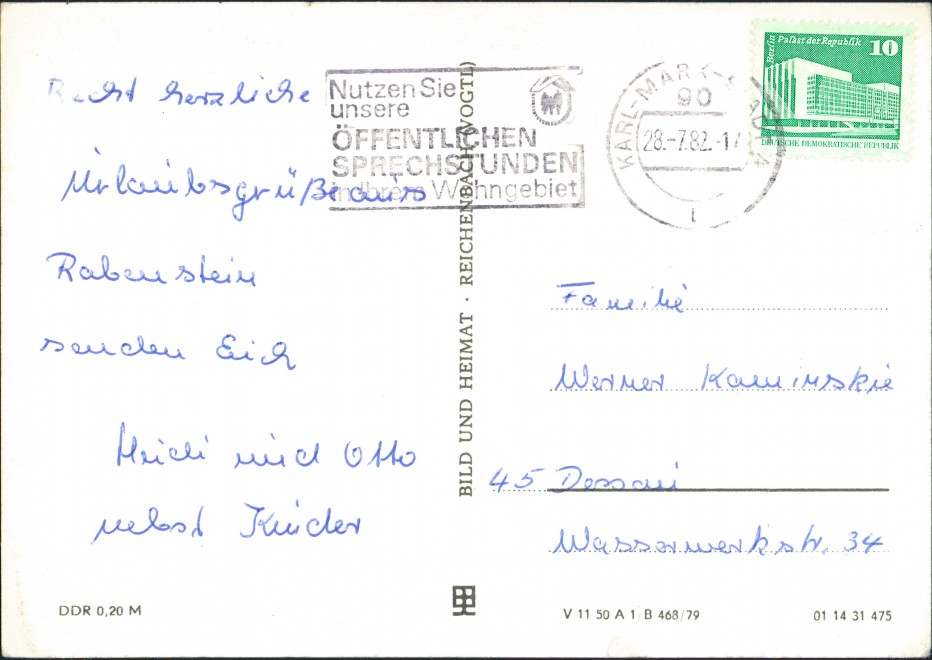 Recht herzliche
Urlaubsgrüße aus
Rabenstein
senden Euch
Heidi und Otto
nebst Kinder
DDR 0,20 M
BILD UND HEIMAT · REICHENBACH (VOGTL)
Nutzen Sie
unsere
ÖFFENTLICHEN
SPRECHSTUNDEN
in Ihrem Wohngebiet
KARL-MARX-STADT
90
28.-7.82.-17
Berlin Palast der Republik 10
DEUTSCHE DEMOKRATISCHE REPUBLIK
Familie
Werner Kaminskie
45 Dessau
Wasserwerkstr. 34
V 11 50 A 1 B 468/79
01 14 31 475